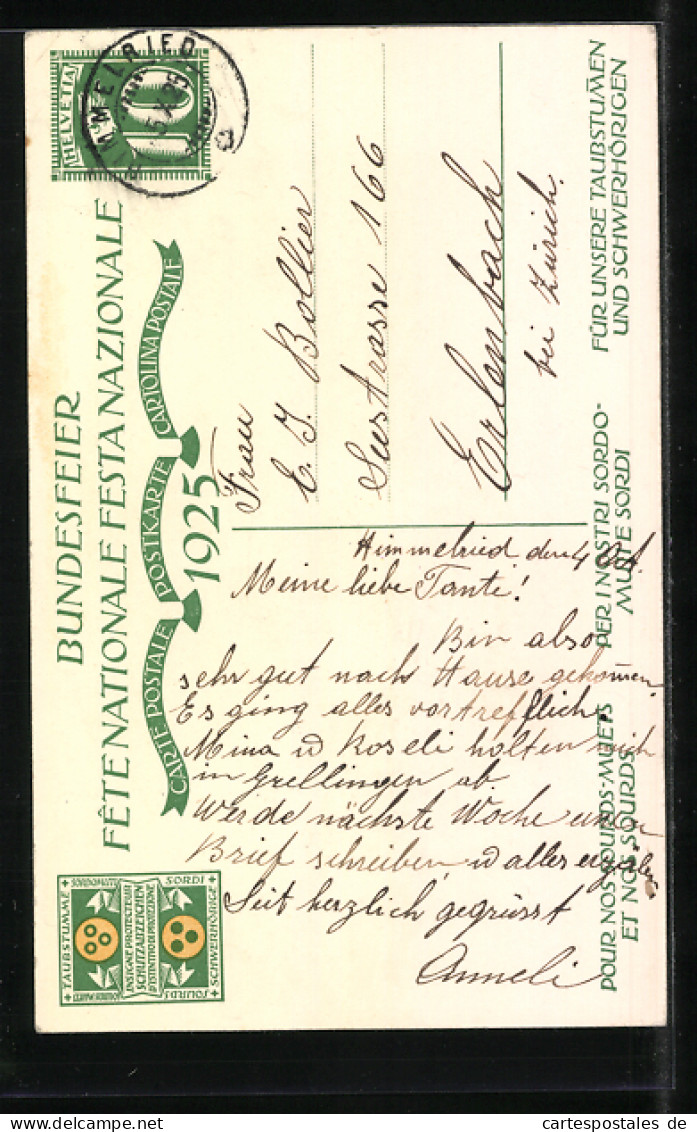 BUNDESFEIER
FÊTE NATIONALE FESTA NAZIONALE
CARTE POSTALE POSTKARTE CARTOLINA POSTALE
1925
HELVETIA
10
HIMMELRIED
TAUBSTUMME
SORDI
INSIGNE PROTECTEUR
SCHUTZABZEICHEN
DISTINTIVO DI PROTEZIONE
SOURDS
SCHWERHÖRIGE
Frau
E. J. Bollier
Seestrasse 166
Erlenbach
bei Zürich.
Himmelried den 4 Okt.
Meine liebe Tante!
Bin also
sehr gut nach Hause gekommen.
Es ging alles vortrefflich.
Mina u Roseli holten mich
in Grellingen ab.
Werde nächste Woche
Brief schreiben u alles
Seit herzlich gegrüsst
Anneli
POUR NOS SOURDS-MUETS PER I NOSTRI SORDO- FÜR UNSERE TAUBSTUMMEN
ET NOS SOURDS MUTI E SORDI UND SCHWERHÖRIGEN
www.cartespostales.de
cartespostales.de